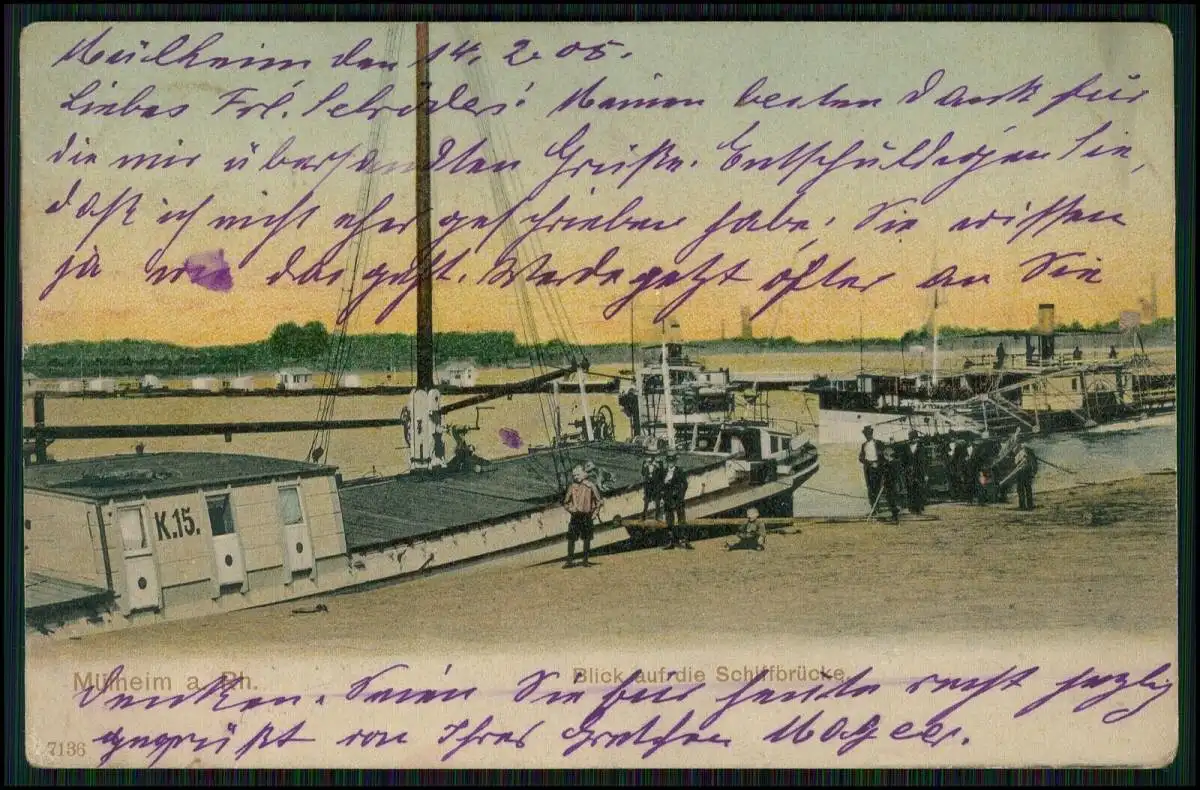 Mülheim den 14.2.05.
Liebes Frl. Schröder! Meinen besten Dank für
die mir übersandten Grüße. Entschuldigen Sie,
daß ich nicht eher geschrieben habe. Sie wissen
ja wie das geht. Werde jetzt öfter an Sie
K.15.
Mülheim a. Rh.
Blick auf die Schiffbrücke.
denken. Seien Sie für heute recht herzlig
gegrüßt von Ihres Gretchen
7136